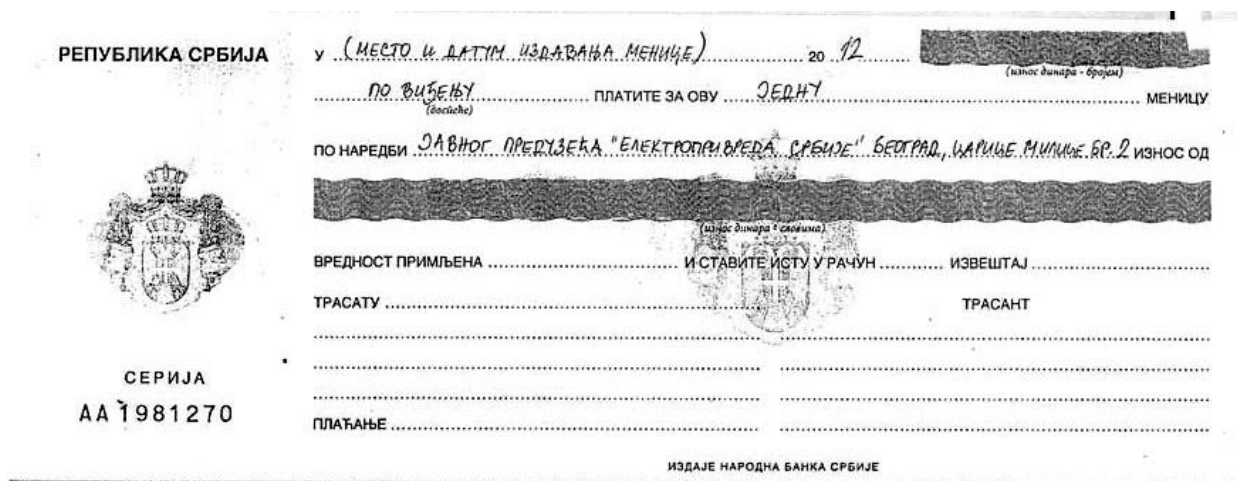 РЕПУБЛИКА СРБИЈА
У (МЕСТО И ДАТУМ ИЗДАВАЊА МЕНИЦЕ) 20 12
(износ динара - бројем)
ПО ВИЂЕЊУ ПЛАТИТЕ ЗА ОВУ ЈЕДНУ МЕНИЦУ
(доспеће)
ПО НАРЕДБИ ЈАВНОГ ПРЕДУЗЕЋА "ЕЛЕКТРОПРИВРЕДА СРБИЈЕ" БЕОГРАД, ЦАРИЦЕ МИЛИЦЕ БР. 2 ИЗНОС ОД
(износ динара - словима)
ВРЕДНОСТ ПРИМЉЕНА И СТАВИТЕ ИСТУ У РАЧУН ИЗВЕШТАЈ
ТРАСАТУ ТРАСАНТ
СЕРИЈА
АА 1981270
ПЛАЋАЊЕ
ИЗДАЈЕ НАРОДНА БАНКА СРБИЈЕ